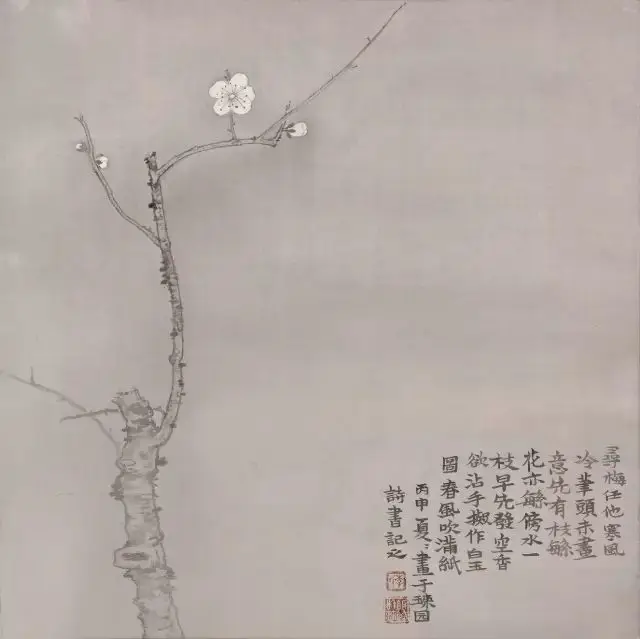 尋梅任他寒風
冷筆頭未畫
意先有枝緐
花亦緐傍水一
枝早先發空香
欲沾手擬作白玉
圖春風吹滿紙
丙申夏畫于园
詩書記之